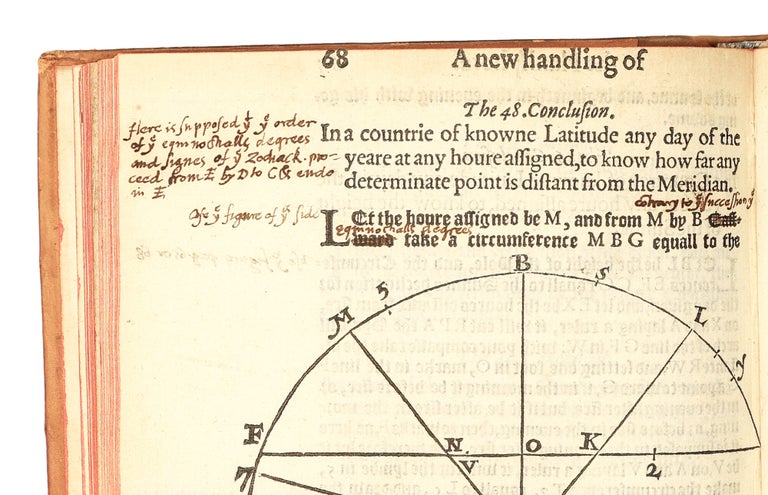 68 A new handling of
The 48. Conclusion.
In a countrie of knowne Latitude any day of the
yeare at any houre assigned, to know how far any
determinate point is distant from the Meridian.
contrary to yͤ succession
LEt the houre assigned be M, and from M by B East-
equinoctialls degrees
ward take a circumference M B G equall to the
Here is supposed yͭ yͤ order
of yͤ equinoctialls degrees
and signes of yͤ Zodiack pro-
ceed from E by D to C & endo
in E
yͤ figure of yͤ side
B
5
5
M
L
y
F
N
O
K
2
V
7